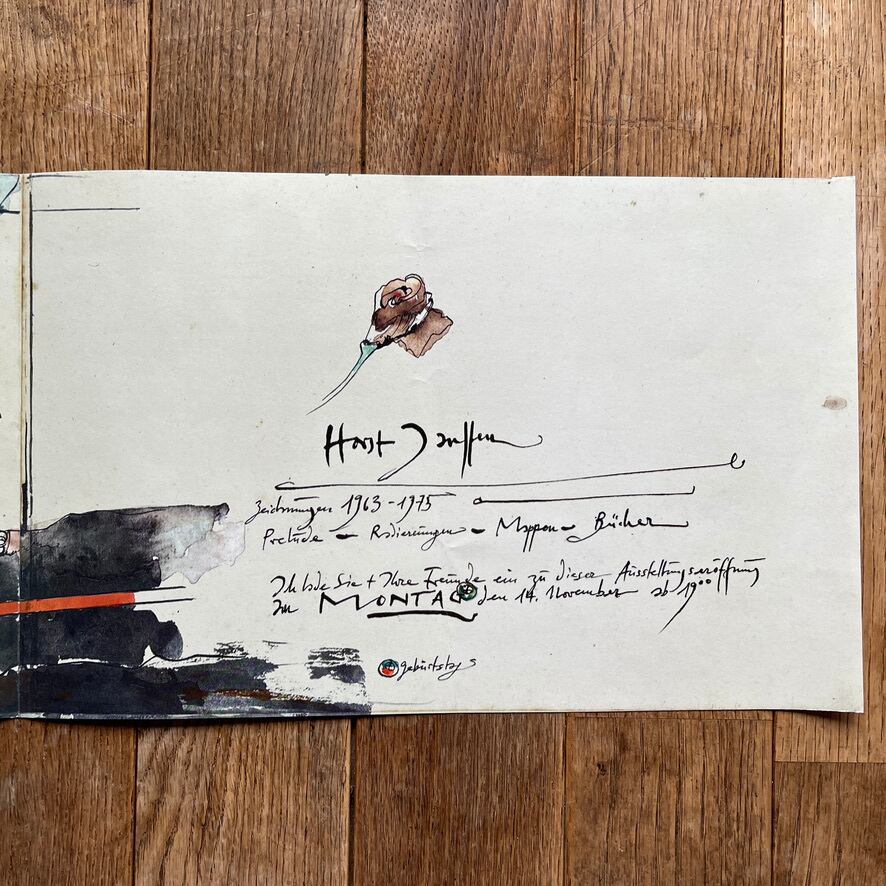 Horst Janssen
Zeichnungen 1963-1975
Prelude – Radierungen – Mappen – Bücher
Ich lade Sie + Ihre Freunde ein zu dieser Ausstellungseröffnung
am MONTAG den 14. November ab 19⁰⁰
geburtstags